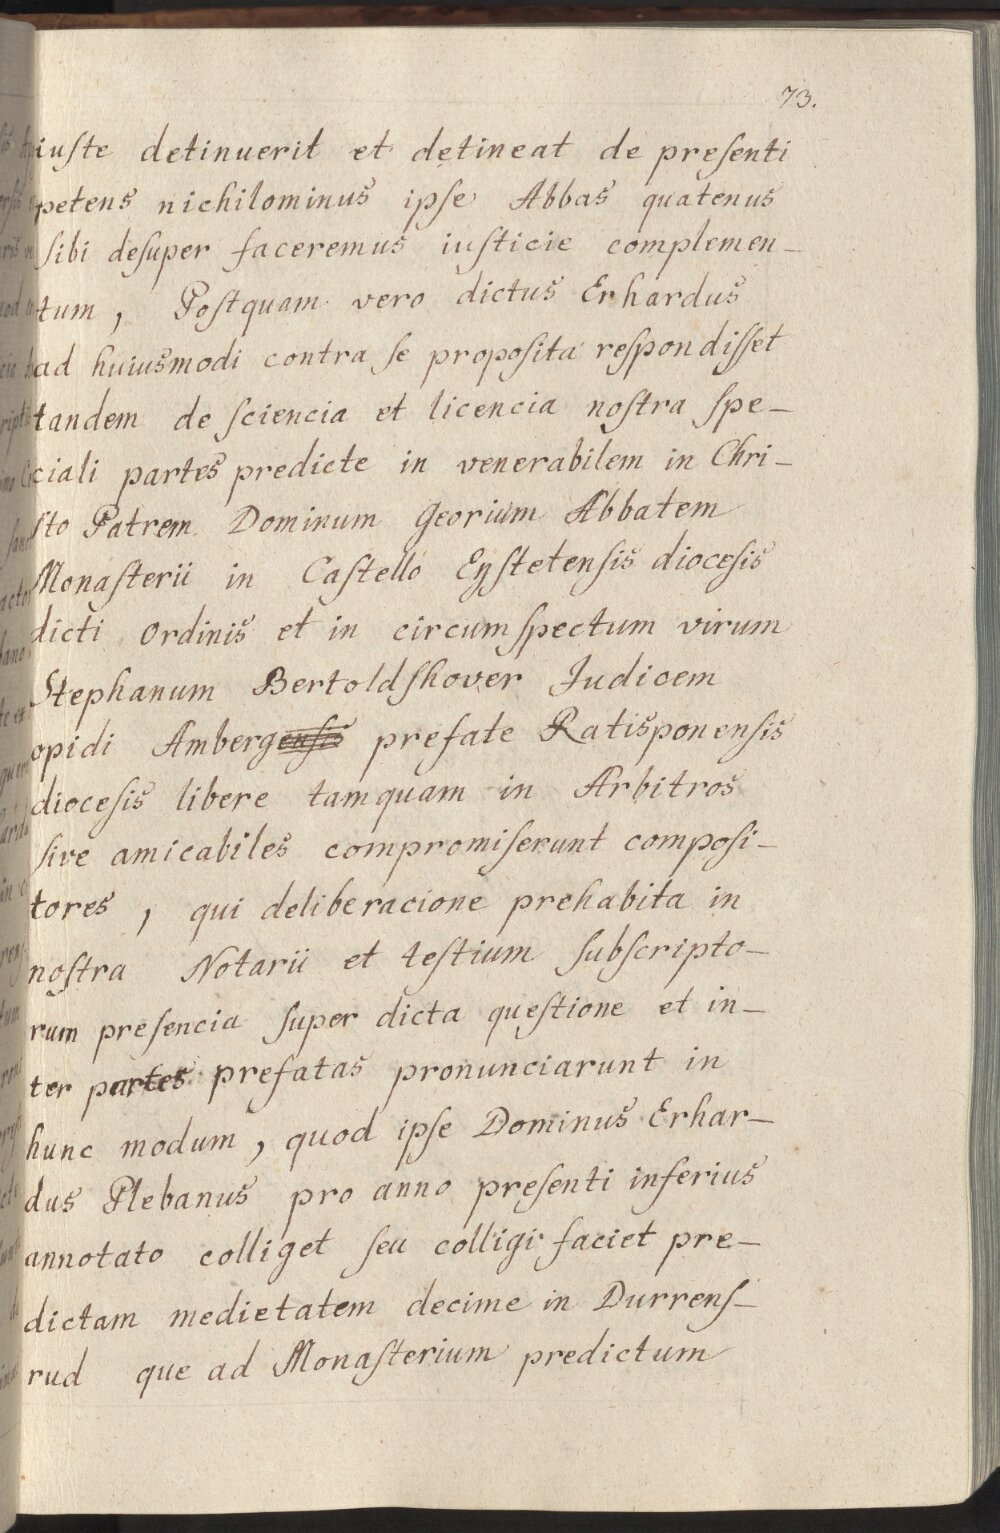 73.
iuste detinuerit et detineat de presenti
petens nichilominus ipse Abbas quatenus
sibi desuper faceremus iusticie complemen-
tum, Postquam vero dictus Erhardus
ad huiusmodi contra se proposita respondisset
tandem de sciencia et licencia nostra spe-
ciali partes predicte in venerabilem in Chri-
sto Patrem Dominum Georium Abbatem
Monasterii in Castello Eystetensis diocesis
dicti ordinis et in circumspectum virum
Stephanum Bertoldshover Iudicem
opidi Ambergensis prefate Ratisponensis
diocesis libere tamquam in Arbitros
sive amicabiles compromiserunt composi-
tores, qui deliberacione prehabita in
nostra Notarii et testium subscripto-
rum presencia super dicta questione et in-
ter partes prefatas pronunciarunt in
hunc modum, quod ipse Dominus Erhar-
dus Plebanus pro anno presenti inferius
annotato colliget seu colligi faciet pre-
dictam medietatem decime in Durrens-
rud que ad Monasterium predictum